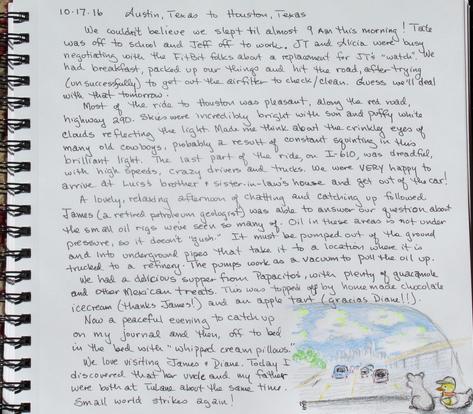 10-17-16 Austin, Texas to Houston, Texas
We couldn't believe we slept til almost 9 am this morning! Tate
was off to school and Jeff off to work. JT and Alicia were busy
negotiating with the FitBit folks about a replacement for JT's "watch". We
had breakfast, packed up our things and hit the road, after trying
(unsuccessfully) to get out the airfilter to check/clean. Guess we'll deal
with that tomorrow.
Most of the ride to Houston was pleasant, along the red road,
highway 290. Skies were incredibly bright with sun and puffy white
clouds reflecting the light. Made me think about the crinkley eyes of
many old cowboys, probably a result of constant squinting in this
brilliant light. The last part of the ride, on I-610, was dreadful,
with high speeds, crazy drivers and trucks. We were VERY happy to
arrive at Luis's brother & sister-in-law's house and get out of the car!
A lovely, relaxing afternoon of chatting and catching up followed
James (a retired petroleum geologist) was able to answer our question about
the small oil rigs we've seen so many of. Oil in these areas is not under
pressure, so it doesn't "gush." It must be pumped out of the ground
and into underground pipes that take it to a location where it is
trucked to a refinery. The pumps work as a vacuum to pull the oil up.
We had a delicious supper from Papacitos, with plenty of guacamole
and other Mexican treats. This was topped off by homemade chocolate
icecream (thanks James!) and an apple tart (gracias Diane!!).
Now a peaceful evening to catch up
on my journal and then, off to bed
in the bed with "whipped cream pillows."
We love visiting James & Diane. Today I
discovered that her uncle and my father
were both at Tulane about the same time.
Small world strikes again!